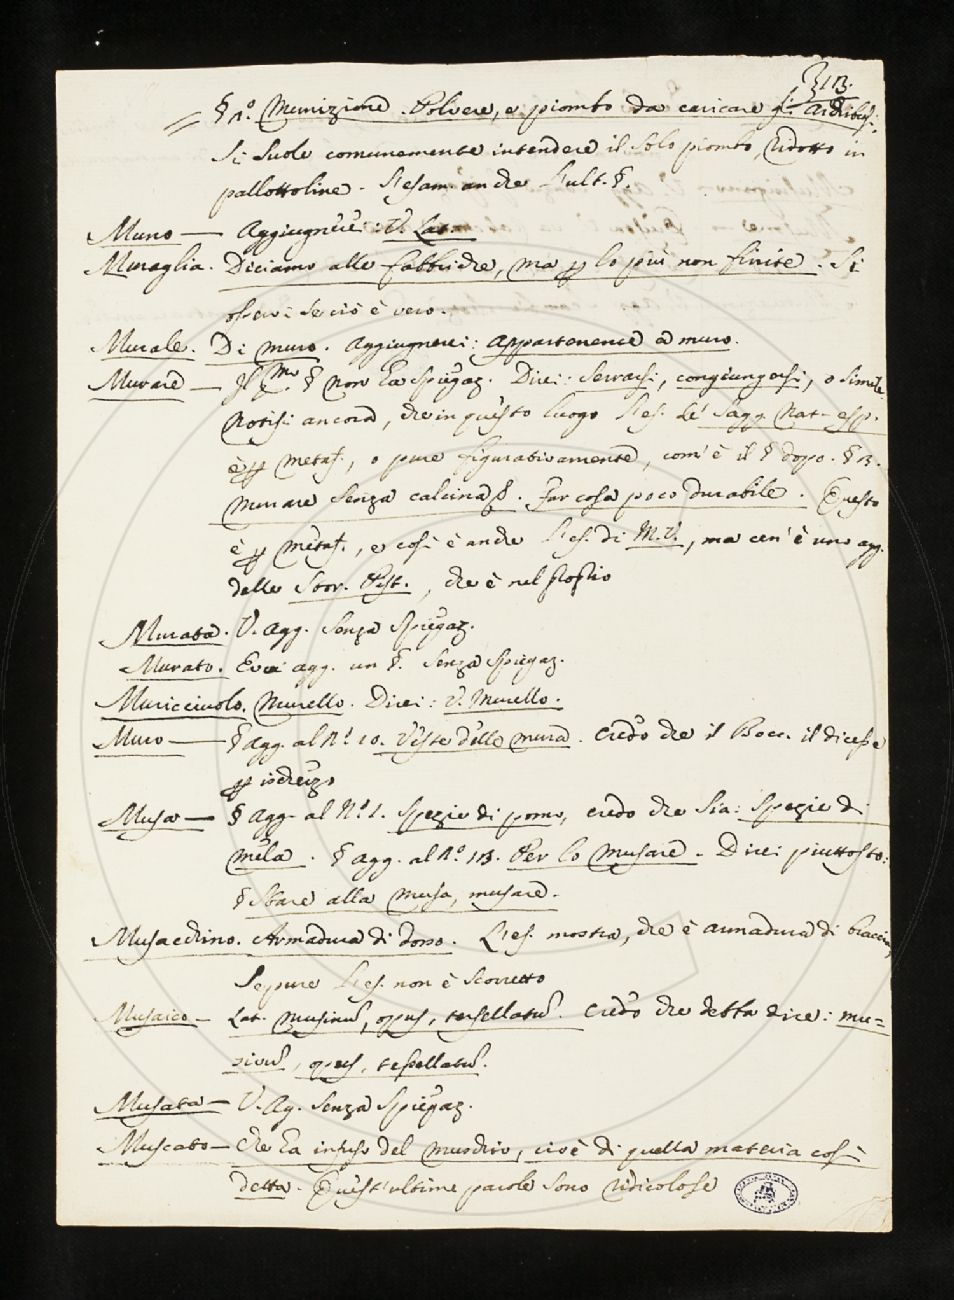 313.
§ 1.° Munizione. Polvere, e piombo da caricare gli archibusi.
Si suole comunemente intendere il solo piombo, ridotto in
pallottoline. L'esam. anche l'ult. §.
Muno — Aggiugnerei: V. Lat.
Muraglia. Diciamo alle fabbriche, ma per lo più non finite. Si
osservi se ciò è vero.
Murale. Di muro. Aggiugnerei: appartenente a muro.
Murare — Il § non ha spiegaz. Direi: Serrarsi, congiungersi, o simile
Notisi ancora, che in questo luogo l'es. de' Sagg. Nat. esp.
è per metaf., o pure figuratamente, com'è il § dopo. § 13.
Murare senza calcina §. Far cosa poco durabile. Questo
è per metaf., e così è anche l'es. di M. V., ma cen'è uno agg.
delle Stor. Pist., che è nel proprio
Murata. V. agg. senza spiegaz.
Murato. Evvi agg. un §. senza spiegaz.
Muricciuolo. Murello. Direi: V. Murello.
Muro — § agg. al N.° 10. Veste delle mura. Credo che il Bocc. il dicesse
per ischerzo
Musa — § agg. al N.° 1. Spezie di pomo, credo che sia: Spezie di
mela. § agg. al N.° 13. Per lo musare. Direi piuttosto:
§ Stare alla musa, musare.
Musacchino. Armadura di dosso. L'es. mostra, che è armadura di braccia,
Seppure l'es. non è scorretto
Musaico — Lat. musinum, opus, tersellatum. Credo che debba dire: mu=
sivum, opus, tessellatum.
Musata — V. Ag. senza spiegaz.
Muscato — Che ha infuso del muschio, cioè di quella materia così
detta. Quest'ultime parole sono ridicolose